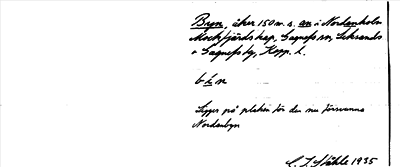 Byn, åker 150 m. s. an i Nordanholn
Mockfjärds kap, Gagnefs sn, Leksands
o Gagnefs tg, Kopp. l.
Ligger på platsen för den nu försvunna
Nordanbyn
1935